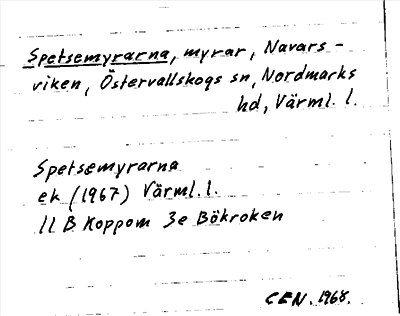 Spetsemyrarna, myrar, Navars-
viken, Östervallskogs sn, Nordmarks
hd, Värml. l.
Spetsemyrarna
ek (1967) Värml. l.
11 B Koppom 3e Bökroken
CEN. 1968.